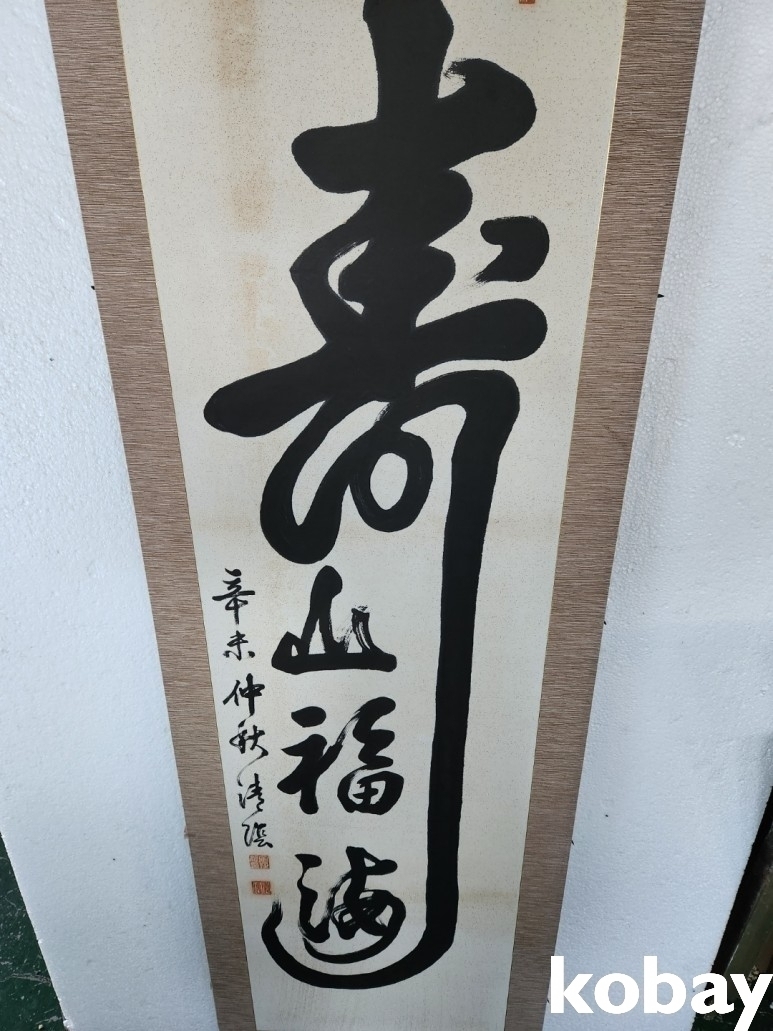 壽山福海
辛未仲秋 清陰
kobay